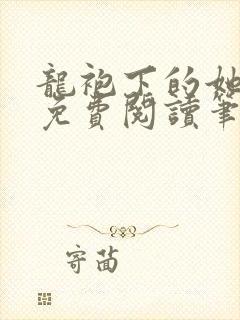 龍袍下的她
免費閱讀筆
寄面